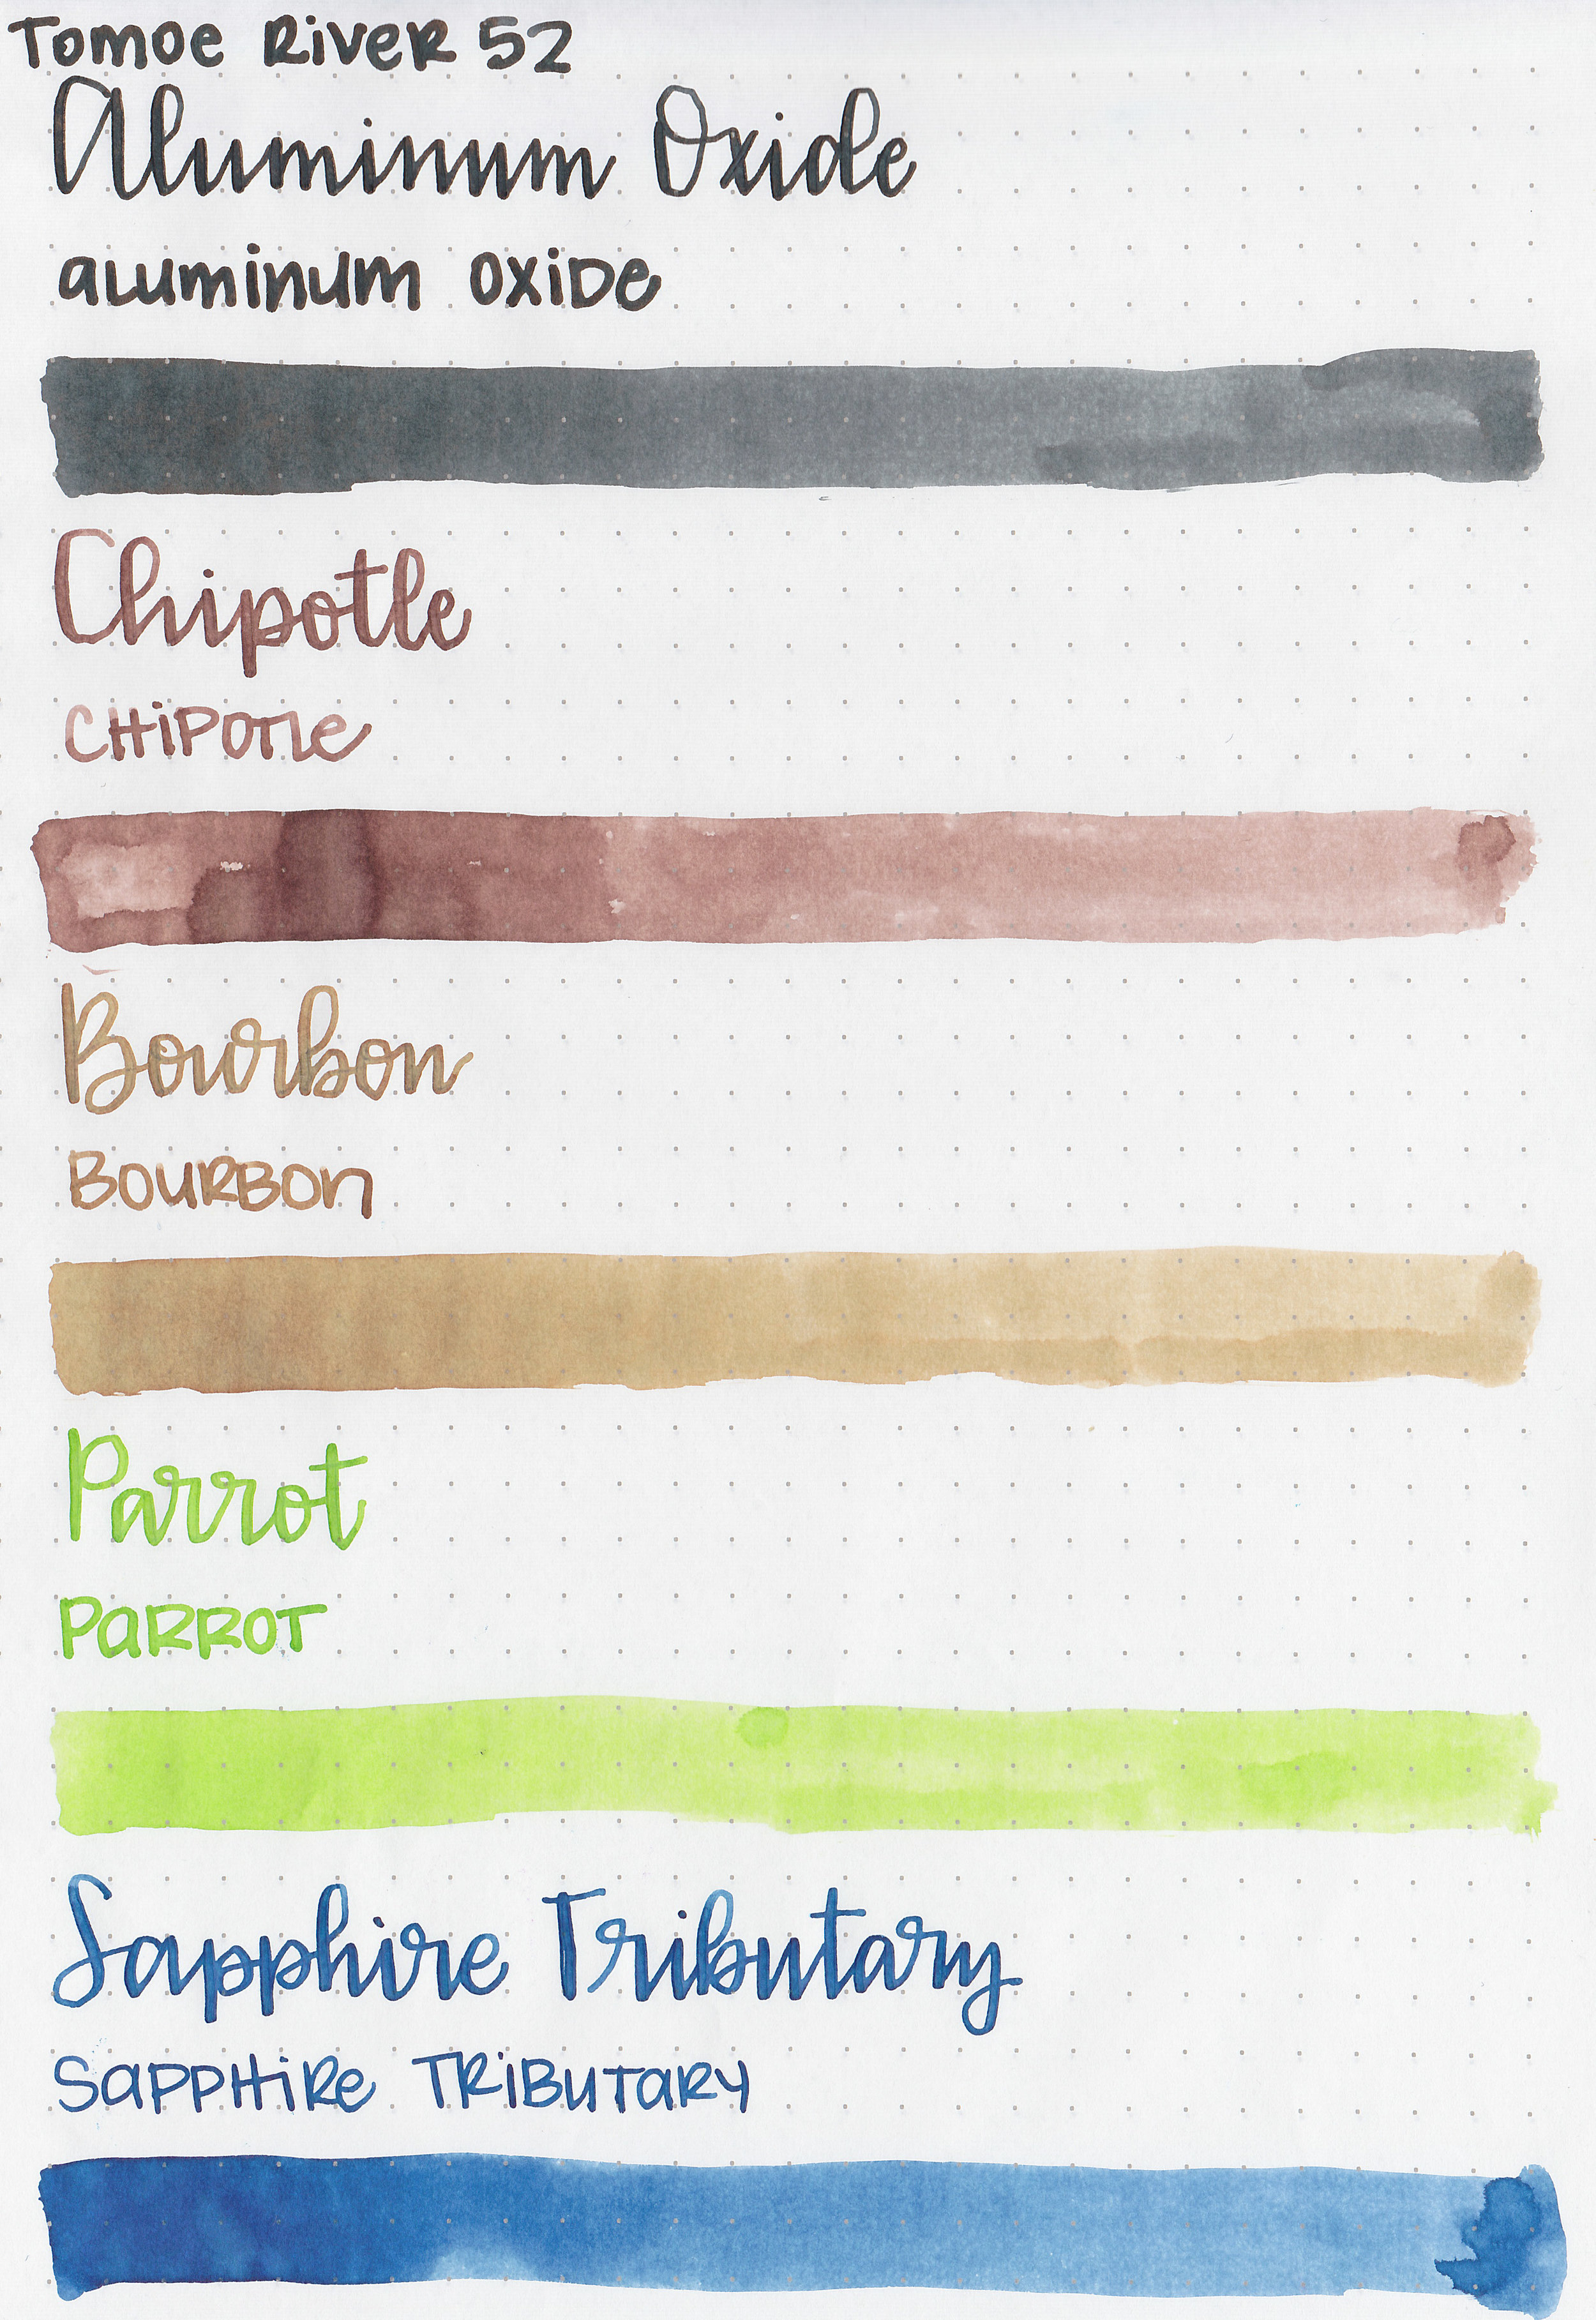 Tomoe River 52
Aluminum Oxide
aluminum oxide
Chipotle
CHiPOTle
Bourbon
BOURBOn
Parrot
PaRROT
Sapphire Tributary
SaPPHiRe TRiBUTaRY